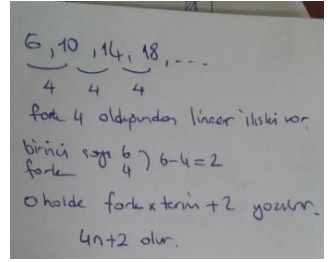 6, 10, 14, 18, ...
4 4 4
fark 4 olduğundan lineer ilişki var.
birinci sayı 6
fark 4 ) 6-4=2
O halde fark x terim + 2 yazılır.
4n+2 olur.